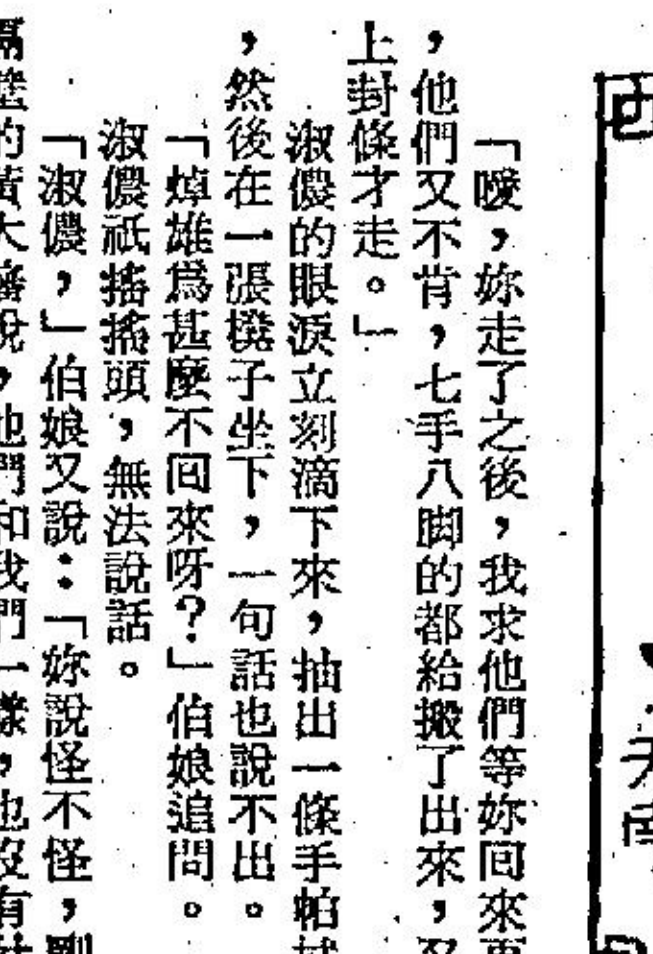 「嗳,妳走了之後,我求他們等妳囘來再
,他們又不肯,七手八脚的都給搬了出來,又
上封條才走。」
淑儂的眼淚立刻滴下來,抽出一條手帕拭
,然後在一張櫈子坐下,一句話也說不出。
「焯雄爲甚麽不囘來呀?」伯娘追問。
淑儂祇搖搖頭,無法說話。
「淑儂,」伯娘又說:「妳說怪不怪,剛
隔壁的黃大嬸說,他們和我們一樣,也沒有